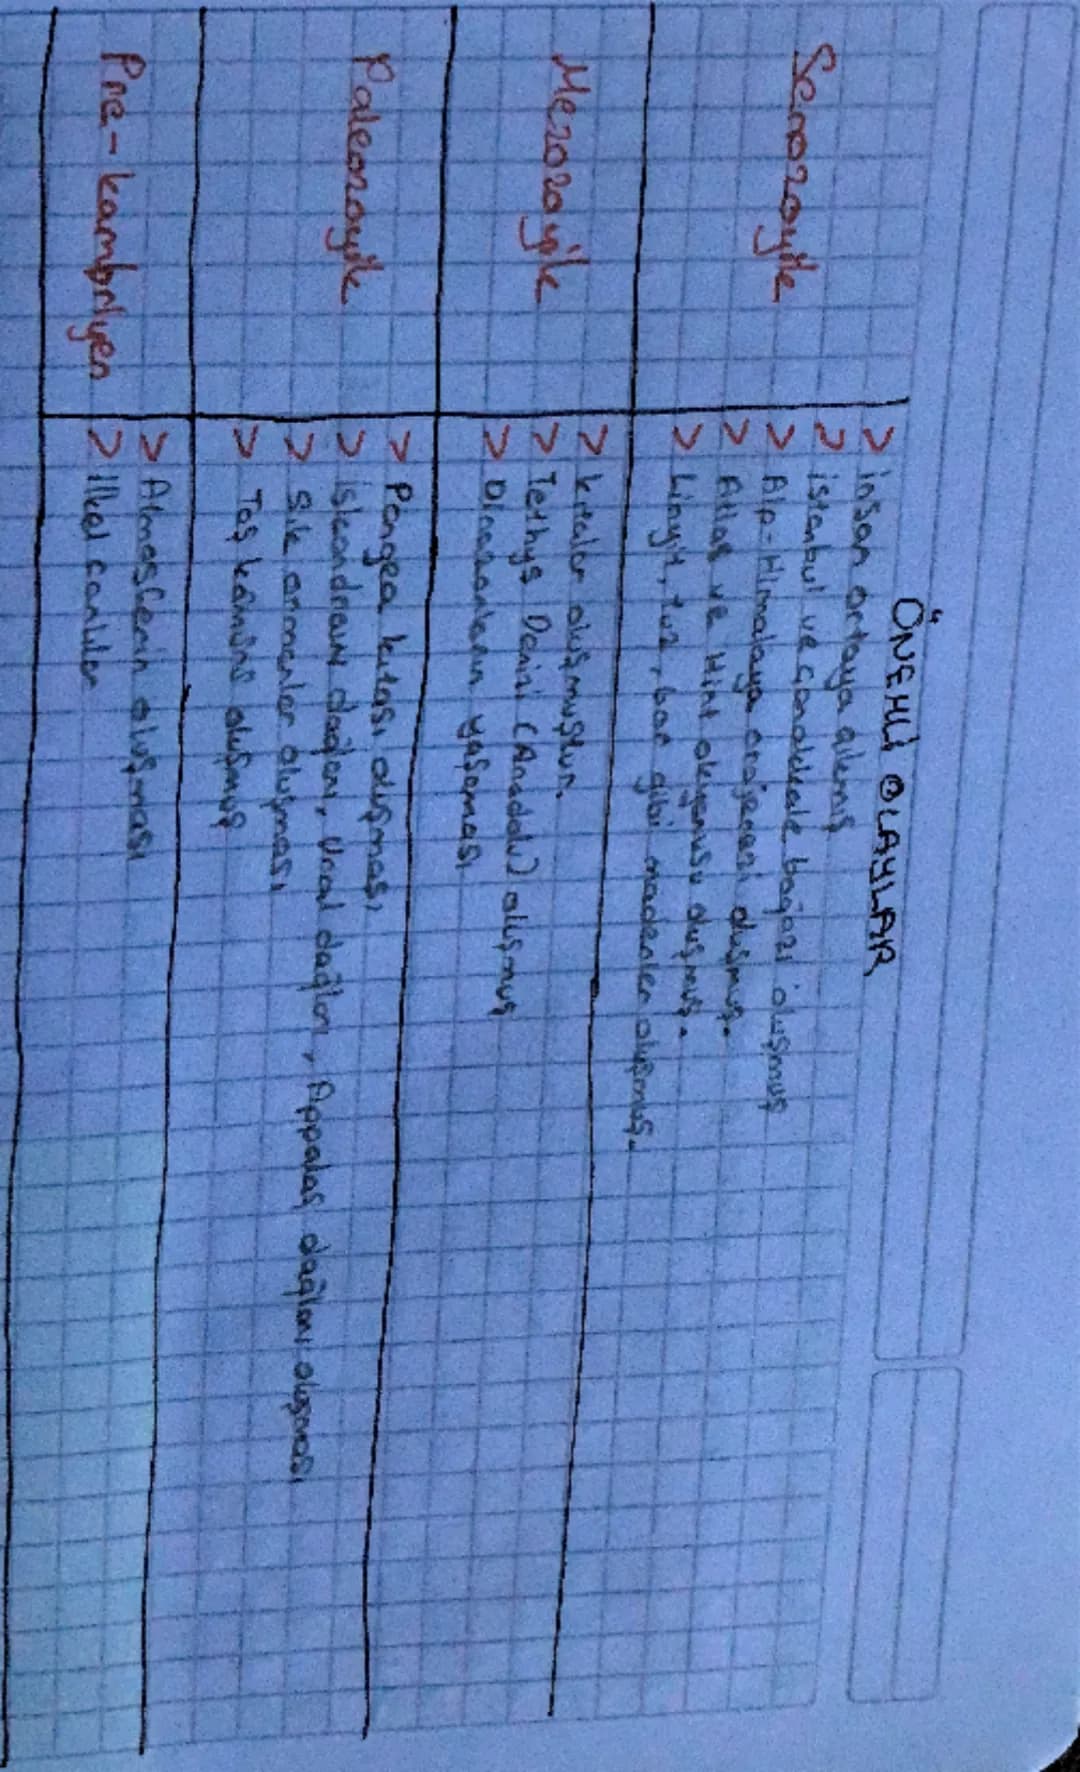 ÖNEMLİ OLAYLAR
Senozoyik
> insan ortaya çıkmış
> istanbul ve Çanakkale boğazı oluşmuş
> Alp-Himalaya orojenezi oluşmuş.
> Atlas ve Hint okyanusu oluşmuş.
> Linyit, tuz, bor gibi madenler oluşmuş.
Mezozoyik
> kıtalar oluşmuştur.
> Tethys Denizi (Anadolu) oluşmuş
> Dinazorların yaşaması
Paleozoyik
> Pangea kıtası oluşması
> iskandinav dağları, Ural dağları, Appalaş dağları oluşması
> Sık ormanlar oluşması
> Taş kömürü oluşmuş
Pre-kambriyen
> Atmosferin oluşması
> ilkel canlılar